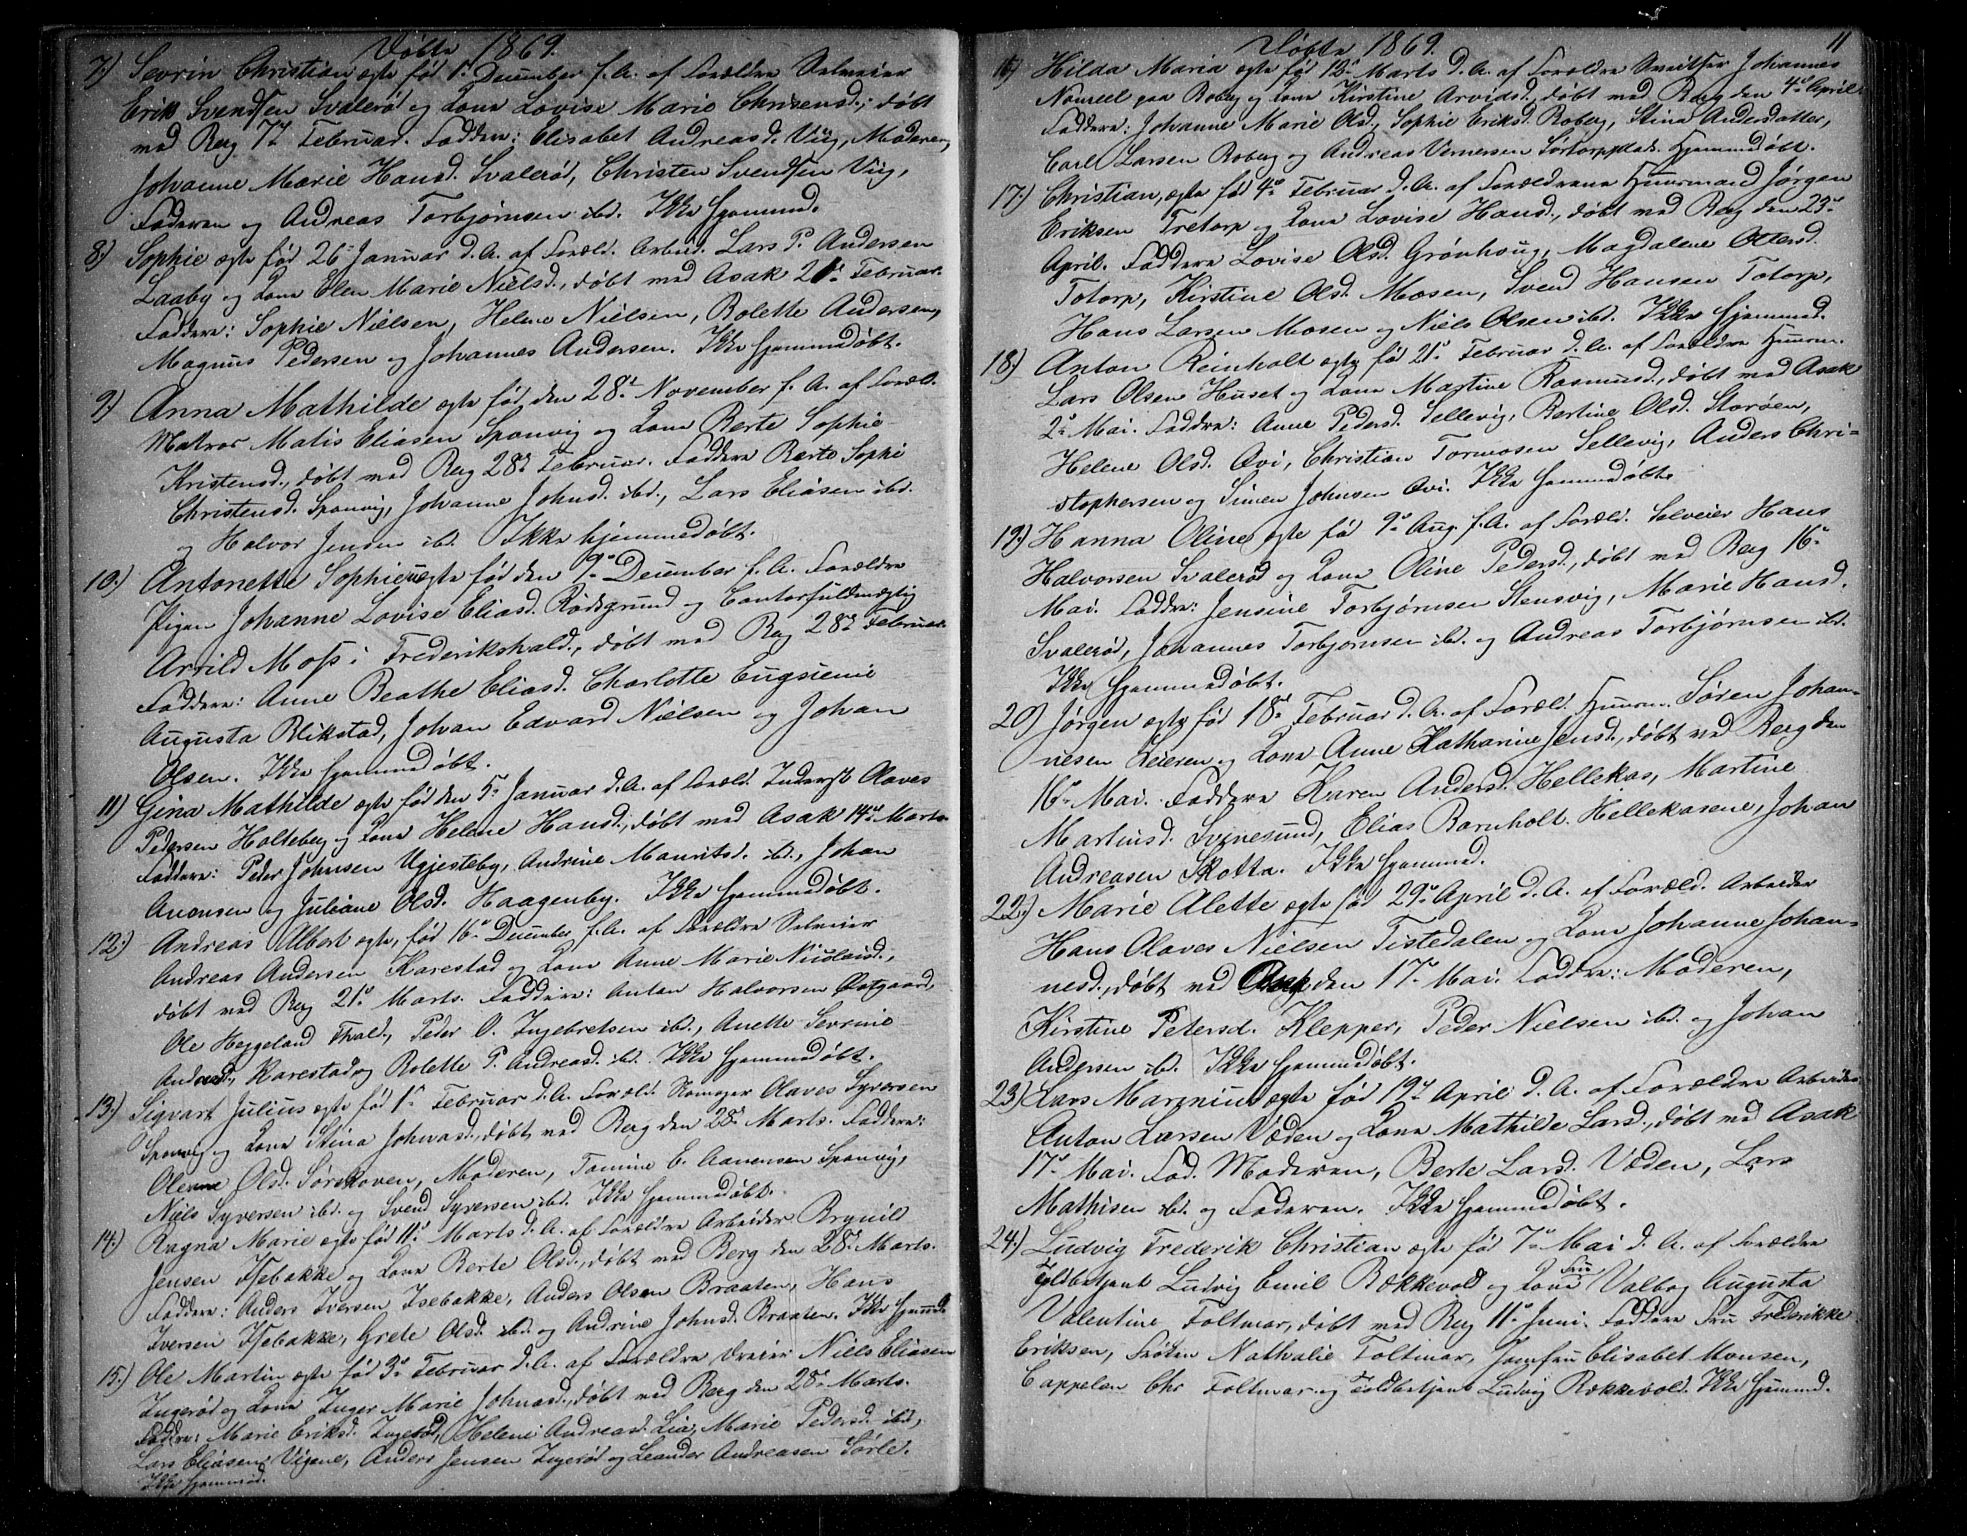 Døbte 1869.
7.) Sevrin Christian ægte før 1ste December f. A. af Forældre Selveier
Erik Svendsen Svalerød og Kone Lovise Marie Christensd.; døbt
ved Berg 7de Februar. Faddere: Elisabet Andreasd. Viig, Moderen,
Johanne Marie Hansd. Svalerød, Christen Svendsen Viig,
Faderen og Andreas Torbjørnsen ibd. Ikke hjemmed.
8.) Sophie ægte født 26 Januar d. A. af Foræld. Arbeid. Lars P. Andersen
Laaby og Kone Elen Marie Nielsd., døbt ved Asak 21de Februar.
Faddere: Sophie Nielsen, Helene Nielsen, Bolette Andersen,
Magnus Pedersen og Johannes Andersen. Ikke hjemmedøbt.
9.) Anna Mathilde ægte født den 28de November f. A. af Foræld.
Matros Matis Eliasen Sponvig og Kone Berte Sophie
Kristensd., døbt ved Berg 28de Februar. Faddere Berte Sophi
Christensd. Sponvig, Johanne Johnsd. ibd., Lars Eliasen ibd.
og Halvor Jensen ibd. Ikke hjemmedøbt.
10.) Antonette Sophie uægte født den 9de December f. A. Forældre
Pigen Johanne Lovise Eliasd. Rødsgrund og Contorfuldmægtig
Arvild Moss i Frederikshald., døbt ved Berg 28de Februar.
Faddere: Anne Beathe Eliasd. Charlotte Eugenie
Augusta Blikstad, Johan Edvard Nielsen og Johan
Olsen. Ikke hjemmedøbt.
11) Gina Mathilde ægte født den 5te Januar d. A. af Foræld. Inderst Olaves
Pedersen Holteberg og Kone Helene Hansd., døbt ved Asak 14de Marts
Faddere: Peder Johnsen Ugjesteby, Andrine Mauritsd. ibd., Johan
Anonsen og Juliane Olsd. Haagenby. Ikke hjemmedøbt.
12.) Andreas Albert ægte, født 16de December f. A. af Forældre Selveier
Andreas Andersen Karestad og Kone Anne Marie Nicolaisd.,
døbt ved Berg 21de Marts. Faddere: Anton Halvorsen
Ole Heggeland Fhald., Peder O. Ingebretsen ibd., Anette Sevrine
Andread., Karestad og Bolette P. Andreasd. ibd. Ikke hjemmedøbt.
13.) Sigvart Julius ægte født 1ste Februar d. A. Foræld. Olaves Syversen
Sponvig og Kone Stina Johnasd., døbt ved Berg den 28de Marts. Faddere:
Olea Olsd. Sørskoven, Moderen, Tomine E. Aanonsen Sponvig,
Niels Syversen ibd. og Svend Syversen ibd. Ikke hjemmedøbt.
14.) Ragna Marie ægte født 11te Marts d. A. af Forældre Arbeider Brynild
Jensen Isebakke og Kone Berte Olsd., døbt ved Berg den 28de Marts.
Faddere: Anders Iversen Isebakke, Anders Olsen Braaten, Hans
Iversen Isebakke, Grete Olsd. ibd. og Andrine Johnsd. Braaten. Ikke hjemmd.
15.) Ole Martin ægte født 3de Februar d. A. af Forældre Niels Eliasen
Ingerød og Kone Inger Marie Johnsd., døbt ved Berg den 28de Marts.
Faddere: Marie Eriksd. Ingerød, Helene Andreasd. Lia, Marie Pedersd. ibd.,
Lars Eliasen Vigene, Anders Jensen Ingerød og Leander Andreasen Sørli.
Ikke hjemmed.
Døbte 1869. 11
16) Hilda Maria ægte født 12te Marts d. A. af Forældre Sveitser Johannes
Noreel paa Roberg og Kone Kirstine Arvidsd., døbt ved Berg den 4de April.
Faddere: Johanne Marie Olsd., Sophie Eriksd. Roberg, Stina Andersdatter,
Carl Larsen Roberg og Andreas Vernersen Sørtorpplads. Hjemmedøbt.
17.) Christian, ægte født 4de Februar d. A. af Forældrene Huusmand Jørgen
Eriksen Tretorp og Kone Lovise Hansd., døbt ved Berg den 23de
April. Faddere Lovise Olsd. Grønhoug, Magdalene Ottersd.
Totorp, Kirstine Olsd. Mosen, Svend Hansen Totorp,
Hans Larsen Mosen og Niels Olsen ibd. Ikke hjemmed.
18.) Anton Reinholt ægte født 21de Februar d. A. af Forældre Huusm.
Lars Olsen Huset og Kone Martine Rasmusd., døbt ved Asak
2de Mai. Faddere: Anne Pedersd. Sellevig, Bertine Olsd. Storøen,
Helene Olsd. Ovi, Christian Tormosen Sellevig, Anders Chri-
stophersen og Simen Johnsen Ovi. Ikke hjemmedøbt.
19.) Hanna Oline ægte født 9de Aug. f. A. af Foræld. Selveier Hans
Halvorsen Svalerød og Kone Oline Pedersd., døbt ved Berg 16de
Mai. Faddere: Jensine Torbjørnsen Stensvig, Marie Hansd.
Svalerød, Johannes Torbjørnsen ibd. og Andreas Torbjørnsen ibd.
Ikke hjemmedøbt.
20) Jørgen ægte født 18de Februar d. A. af Foræld. Huusm. Søren Johan-
nesen Leieren og Kone Anne Katharine Jensd., døbt ved Berg den
16de Mai. Faddere Karen Andersd. Hellekas, Martine
Martinsd. Svinesund, Elias Barnholt. Hellekasene, Johan
Andreasen Skotte. Ikke hjemmed.
22.) Marie Alette ægte født 29de April d. A. af Foræld. Arbeider
Hans Olaves Nielsen Tistedalen og Kone Johanne Johan-
nesd., døbt ved Asak den 17de Mai. Faddere: Moderen,
Kirstine Petersd. Klepper, Peder Nielsen ibd. og Johan
Andersen ibd. Ikke hjemmedøbt.
23.) Lars Marenius ægte født 19de April d. A. af Forældre Arbeider
Anton Larsen Væden og Kone Mathilde Larsd., døbt ved Asak
17de Mai. Fad. Moderen, Berte Larsd. Væden, Lars
Mathisen ibd. og Faderen. Ikke hjemmedøbt.
24.) Ludvig Frederik Christian ægte født 7de Mai d. A. af Forældre
Toldbetjent Ludvig Emil Bækkevold og Kone Fru Valborg Augusta
Valentine Foltmar, døbt ved Berg 11te Juni. Faddere Fru Frederikke
Eriksen, Frøken Nathalie Foltmar, Jomfru Elisabet Monsen,
Cappelen Chr Foltmar og Toldbetjent Ludvig Bækkevold. Ikke hjemmd.